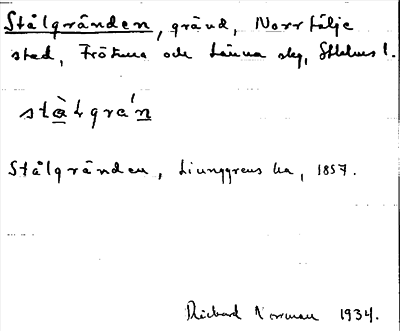 Stålgränden, gränd, Norrtälje
stad, Frötuna och Länna skg, Sthlms l.
stàLgra´n
Stålgränden, Ljunggrens ka, 1857.
Rickard Norrman 1934.